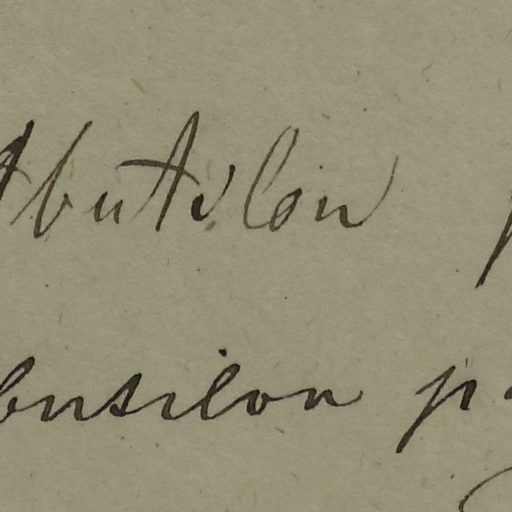 Abutilon p
butilon p